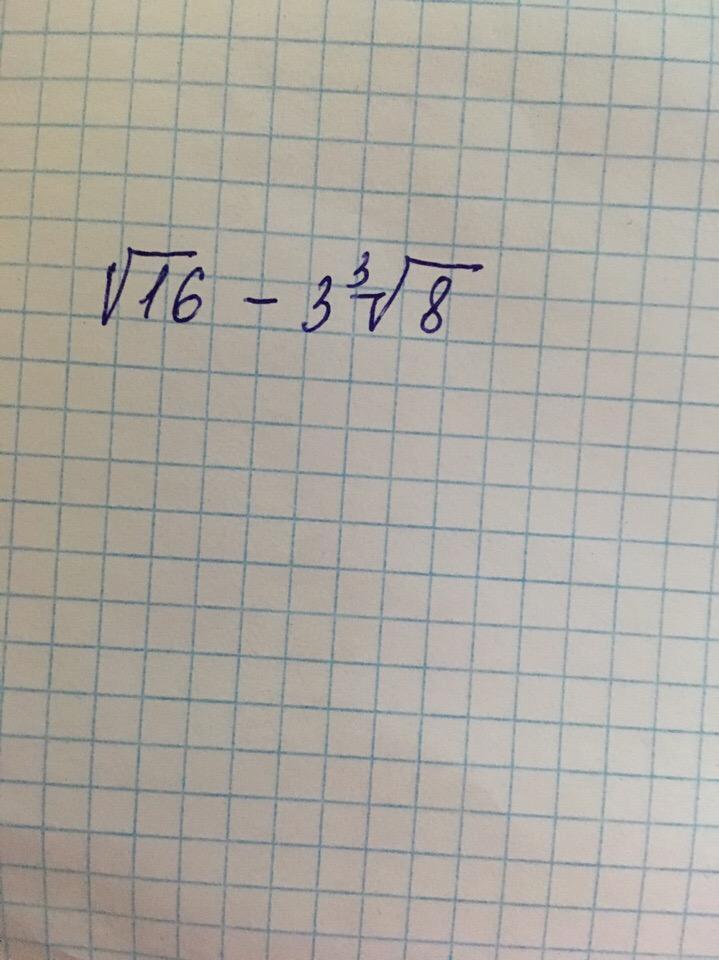 √16 - 3 ∛8